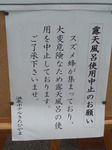 露天風呂使用中止のお願い
スズメ蜂が集まっており、
大変危険なため露天風呂の使
用を中止しております。
ご了承下さいませ。